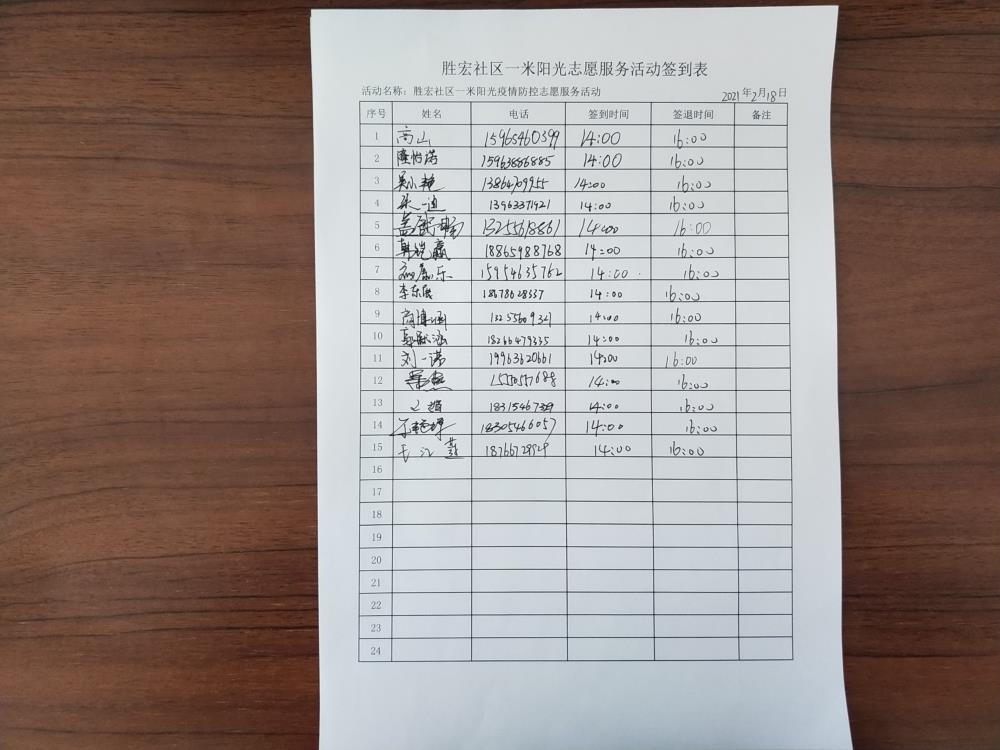 胜宏社区一米阳光志愿服务活动签到表
活动名称：胜宏社区一米阳光疫情防控志愿服务活动 2021年2月18日
序号 姓名 电话 签到时间 签退时间 备注
1 高山 15965460399 14:00 16:00
2 隆怡诺 15963886885 14:00 16:00
3 吴小艳 13864709955 14:00 16:00
4 张一迪 13963371921 14:00 16:00
5 13255618861 14:00 16:00
6 韩铠赢 18865988768 14:00 16:00
7 乐 15954635762 14:00 16:00
8 李东宸 18678628337 14:00 16:00
9 商博涵 14:00 16:00
10 18266479335 14:00 16:00
11 刘一诺 19963620661 14:00 16:00
12 14:00 16:00
13 14:00 16:00
14 18305466057 14:00 16:00
15 14:00 16:00
16
17
18
19
20
21
22
23
24